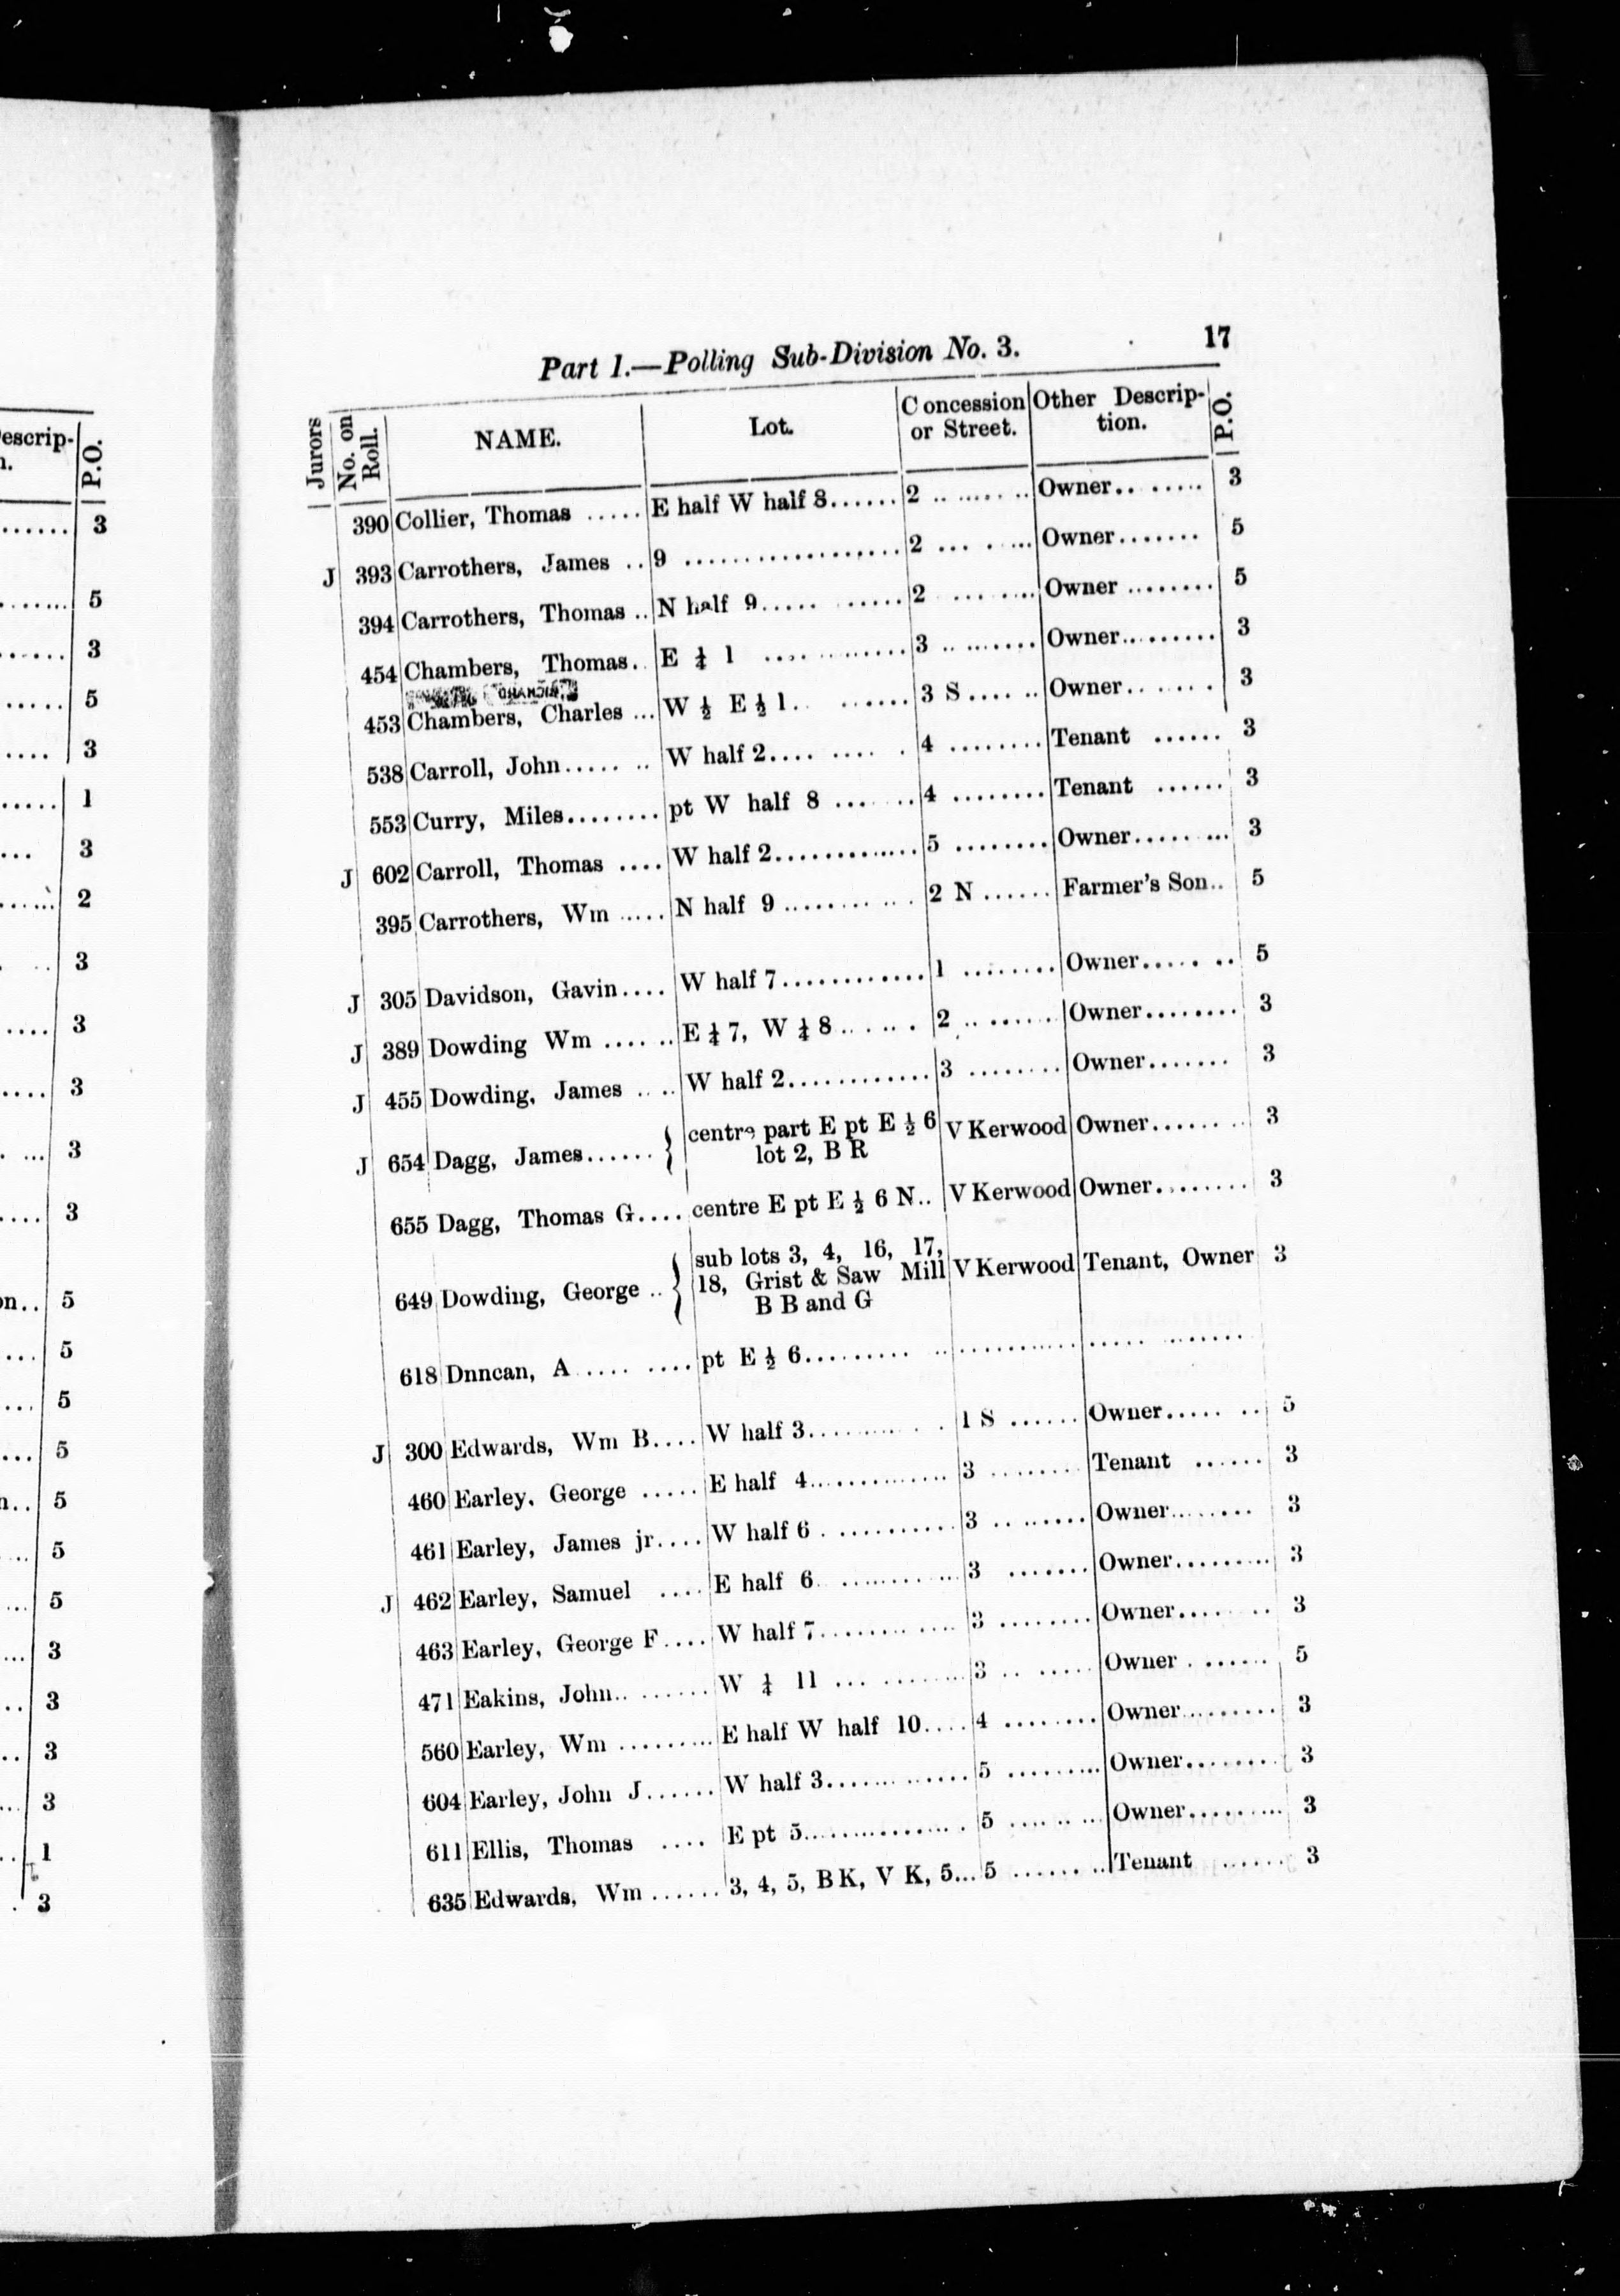 Part 1.—Polling Sub-Division No. 3. 17
Jurors No. on Roll. NAME. Lot. Concession or Street. Other Descrip-tion. P.O.
390 Collier, Thomas ..... E half W half 8...... 2 ........ Owner........ 3
J 393 Carrothers, James .. 9 .................. 2 ........ Owner....... 5
394 Carrothers, Thomas .. N half 9........... 2 ........ Owner ........ 5
454 Chambers, Thomas.. E ¼ 1 ............ 3 ........ Owner......... 3
453 Chambers, Charles ... W ½ E ½ 1........ 3 S...... Owner....... 3
538 Carroll, John....... W half 2......... 4 ........ Tenant ...... 3
553 Curry, Miles........ pt W half 8 ....... 4 ........ Tenant ...... 3
J 602 Carroll, Thomas .... W half 2............ 5 ........ Owner......... 3
395 Carrothers, Wm ..... N half 9 ........... 2 N ...... Farmer's Son.. 5
J 305 Davidson, Gavin.... W half 7............ 1 ........ Owner....... 5
J 389 Dowding Wm ...... E ¼ 7, W ¼ 8....... 2 ........ Owner........ 3
J 455 Dowding, James .... W half 2............ 3 ........ Owner....... 3
J 654 Dagg, James...... { centre part E pt E ½ 6 V Kerwood Owner........ 3
lot 2, B R
655 Dagg, Thomas G.... centre E pt E ½ 6 N.. V Kerwood Owner........ 3
sub lots 3, 4, 16, 17,
649 Dowding, George .. { 18, Grist & Saw Mill V Kerwood Tenant, Owner 3
B B and G
618 Dnncan, A ........ pt E ½ 6........... ............ ............
J 300 Edwards, Wm B.... W half 3........... 1 S ...... Owner....... 5
460 Earley, George ..... E half 4............ 3 ........ Tenant ...... 3
461 Earley, James jr.... W half 6 ........... 3 ........ Owner........ 3
J 462 Earley, Samuel .... E half 6 ........... 3 ....... Owner......... 3
463 Earley, George F.... W half 7............ 3 ........ Owner....... 3
471 Eakins, John........ W ¼ 11 ........... 3 ....... Owner ....... 5
560 Earley, Wm ......... E half W half 10.... 4 ........ Owner......... 3
604 Earley, John J...... W half 3............ 5 ......... Owner........ 3
611 Ellis, Thomas .... E pt 5.............. 5 ........ Owner......... 3
635 Edwards, Wm ...... 3, 4, 5, B K, V K, 5... 5 ........ Tenant ...... 3
escrip-
P.O.
...... 3
....... 5
...... 3
..... 5
.... 3
..... 1
... 3
...... 2
.. 3
.... 3
.... 3
... 3
.... 3
on.. 5
... 5
... 5
... 5
n.. 5
... 5
... 5
... 3
.. 3
.. 3
... 3
.. 1
. 3